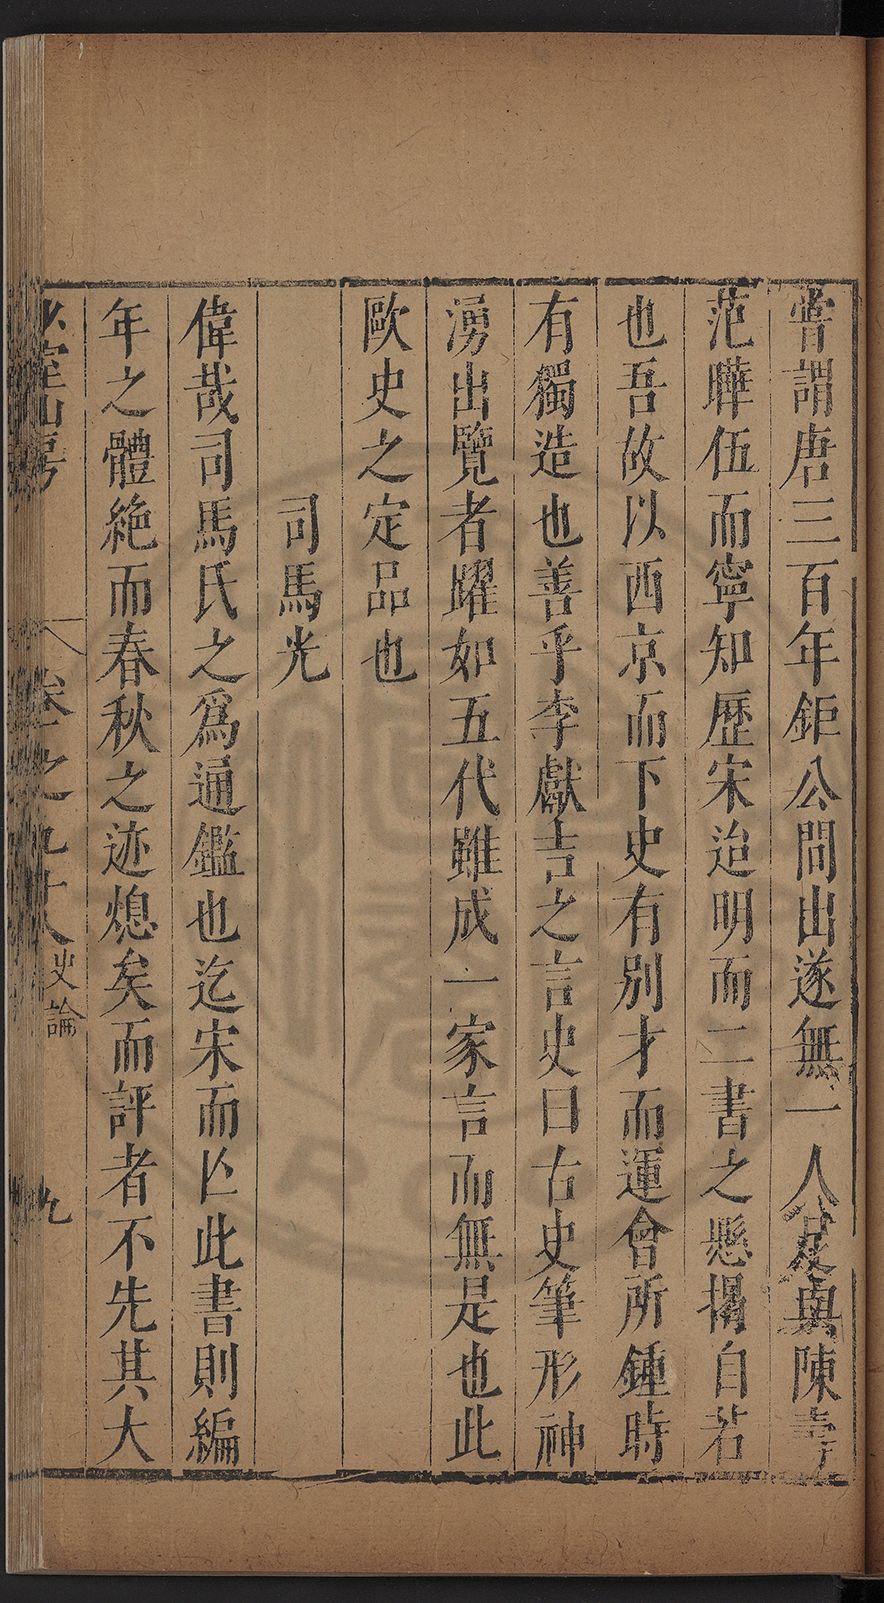 嘗謂唐三百年鉅公問出遂無一人足與陳壽
范曄伍而寧知歷宋迨明而二書之懸揭自若
也吾故以西京而下史有別才而運會所鍾時
有獨造也善乎李獻吉之言史曰古史筆形神
湧出覽者躍如五代雖成一家言而無是也此
歐史之定品也
司馬光
偉哉司馬氏之爲通鑑也迄宋而亾此書則編
年之體絶而春秋之迹熄矣而評者不先其大
少室山房
卷之九十八
史論
九